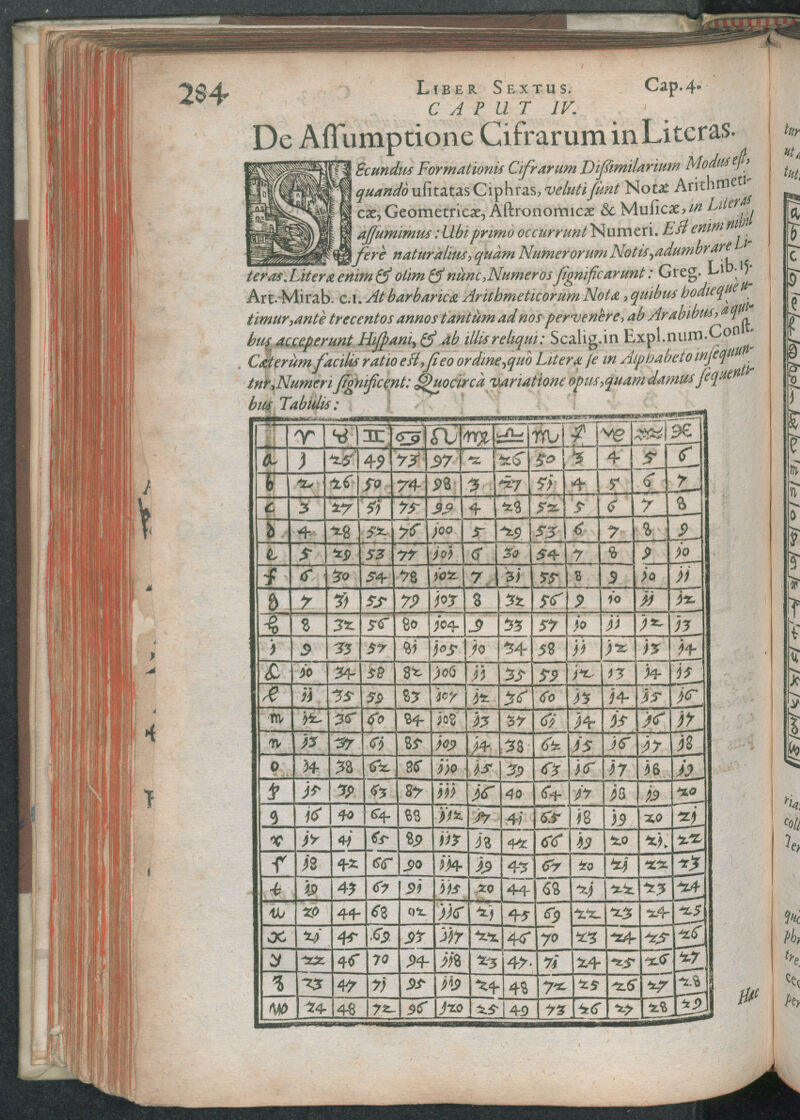 284 LIBER SEXTUS. Cap. 4.
CAPUT IV.
De Aſſumptione Cifrarum in Literas.
SEcundus Formationis Cifrarum Diſsimilarium Modus eſt,
quandò uſitatas Ciphras, veluti ſunt Notæ Arithmeti-
cæ, Geometricæ, Aſtronomicæ & Muſicæ, in Literas
aſſumimus: Ubi primò occurrunt Numeri. Eſt enim nihil
ferè naturalius, quàm Numerorum Notis, adumbrare Li-
teras. Literæ enim & olim & nunc, Numeros ſignificarunt: Greg. Lib. 15.
Art. Mirab. c. 1. At barbaricæ Arithmeticorum Notæ, quibus hodieque u-
timur, antè trecentos annos tantùm ad nos pervenêre, ab Arabibus, à qui-
bus acceperunt Hiſpani, & ab illis reliqui: Scalig. in Expl. num. Conſt.
Cæterùm facilis ratio eſt, ſi eo ordine, quò Literæ ſe in Alphabeto inſequun-
tur, Numeri ſignificent: Quocircà variatione opus, quam damus ſequenti-
bus Tabulis:
♈ ♉ ♊ ♋ ♌ ♍ ♎ ♏ ♐ ♑ ♒ ♓
a 1 25 49 73 97 2 26 50 3 4 5 6
b 2 26 50 74 98 3 27 51 4 5 6 7
c 3 27 51 75 99 4 28 52 5 6 7 8
d 4 28 52 76 100 5 29 53 6 7 8 9
e 5 29 53 77 101 6 30 54 7 8 9 10
f 6 30 54 78 102 7 31 55 8 9 10 11
g 7 31 55 79 103 8 32 56 9 10 11 12
h 8 32 56 80 104 9 33 57 10 11 12 13
i 9 33 57 81 105 10 34 58 11 12 13 14
k 10 34 58 82 106 11 35 59 12 13 14 15
l 11 35 59 83 107 12 36 60 13 14 15 16
m 12 36 60 84 108 13 37 61 14 15 16 17
n 13 37 61 85 109 14 38 62 15 16 17 18
o 14 38 62 86 110 15 39 63 16 17 18 19
p 15 39 63 87 111 16 40 64 17 18 19 20
q 16 40 64 88 112 17 41 65 18 19 20 21
r 17 41 65 89 113 18 42 66 19 20 21 22
ſ 18 42 66 90 114 19 43 67 20 21 22 23
t 19 43 67 91 115 20 44 68 21 22 23 24
u 20 44 68 92 116 21 45 69 22 23 24 25
x 21 45 69 93 117 22 46 70 23 24 25 26
y 22 46 70 94 118 23 47 71 24 25 26 27
z 23 47 71 95 119 24 48 72 25 26 27 28
w 24 48 72 96 120 25 49 73 26 27 28 29
Hac